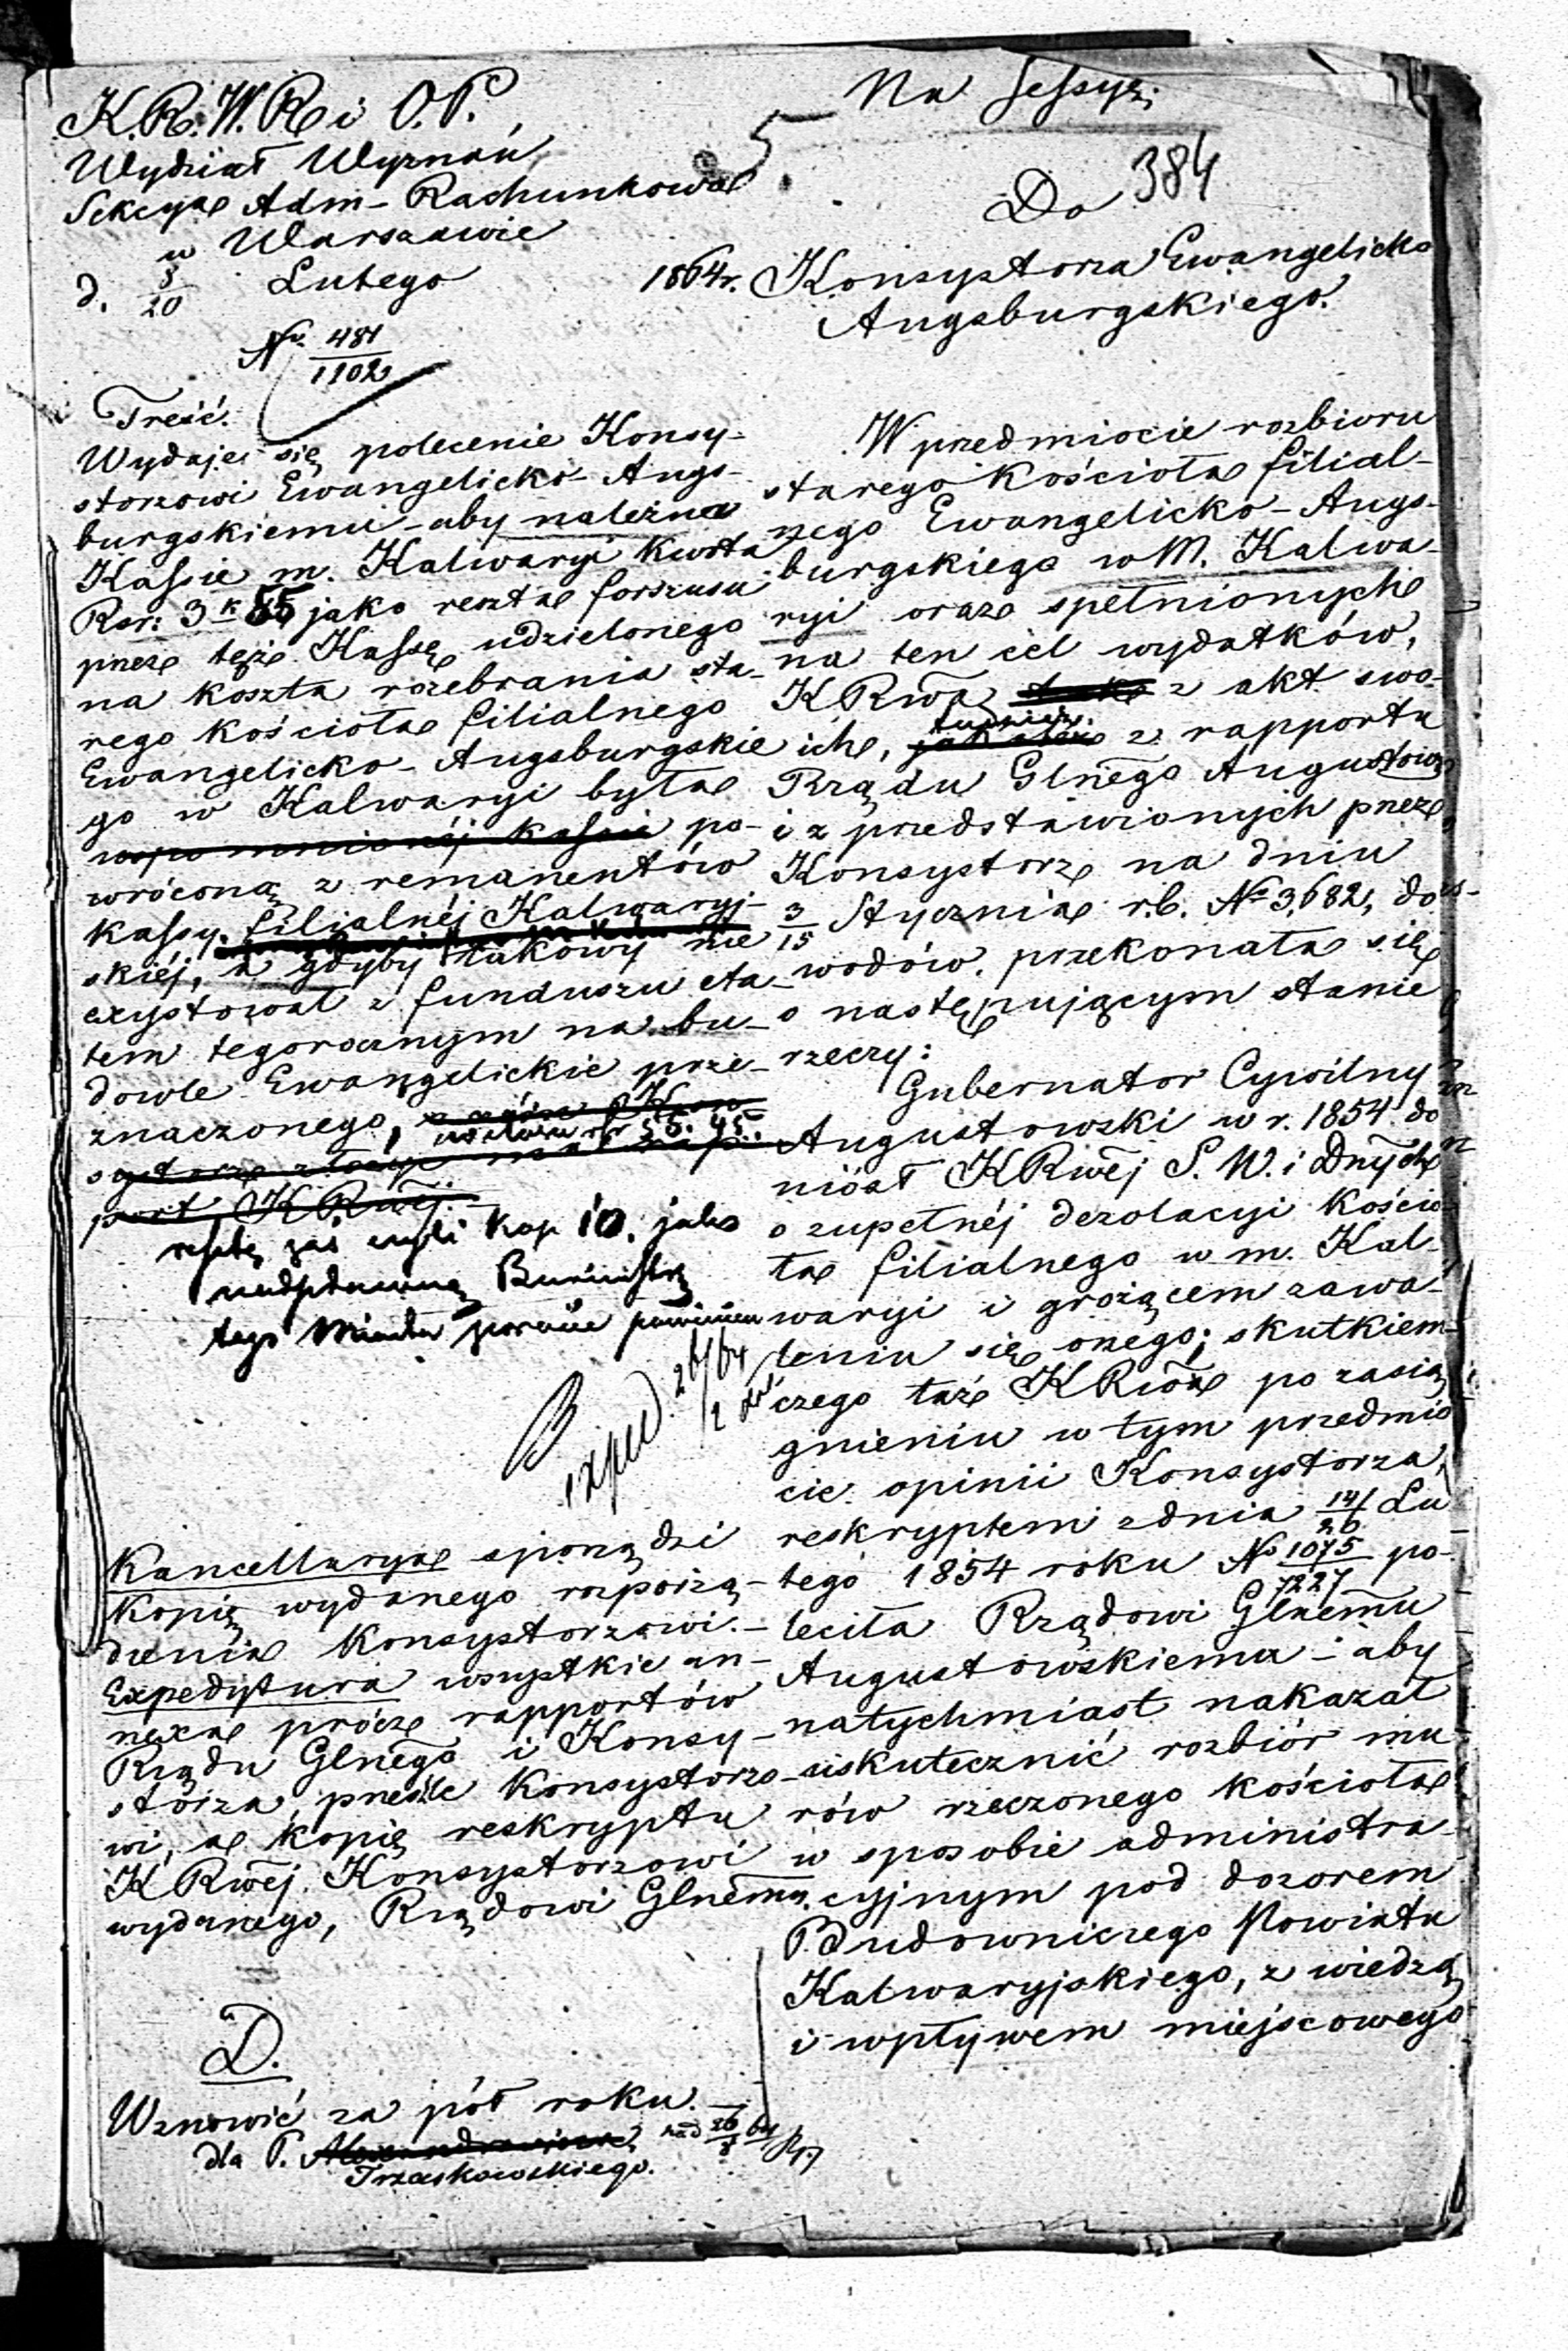 K.R.W.R. i O.P.
Wydział Wyznań
Sekcya Adm- Rachunkowa
w Warszawie
d. 8/20 Lutego 1864 r.
No. 481/1102
Na Sessyi
5
384
Treść.
Wydaje się polecenie Konsy-
storzowi Ewangelicko- Augs-
burgskiemu - aby należna
Kassie m. Kalwaryi kwota
Rsr: 3 k 55 jako reszta forszusu
przez też Kassę udzielonego
na koszta rozebrania sta-
rego kościoła filialnego
Ewangelicko- Augsburgskie
go w Kalwaryi była
wspomnionéj kassie po-
wróconą z remanentów
kassy filialnéj Kalwaryj-
skiéj, a gdyby takowy nie
exystował z funduszu eta-
tem tegorocznym na bu-
dowle Ewangelickie prze-
znaczonego,
port KRwéj.
resztę zaś czyli kop 10. jako
Burmistrz
tego Miasta ponieść powinien
Exped. 26/2 64
Kancellarya sporządzi
kopią wydanego rozporzą-
dzenia Konsystorzowi.-
Expedytura wszystkie an-
nexa prócz rapportów
Rządu Glnego i Konsy-
storza prześle Konsystorzo-
wi, a kopię reskryptu
KRwéj Konsystorzowi
wydanego, Rządowi Glnemu.
D.
Wznowić za pół roku.-
dla P.
Trzaskowskiego.
Do
Konsystorza Ewangelicko
Augsburgskiego.
W przedmiocie rozbioru
starego kościoła filial-
nego Ewangelicko-Augs-
burgskiego w M. Kalwa-
ryi oraz spełnionych
na ten cel wydatków,
KRwa z akt swo-
ich, tudzież z rapportu
Rządu Glnego Augustow
i z przedstawionych przez
Konsystorz na dniu
3/15 Stycznia r.b. No 3,682, do-
wodów. przekonała się
o następującym stanie
rzeczy:
Gubernator Cywilny
Augustowski w r. 1854 do
niósł KRwéj S.W. i Dnych
o zupełnéj dezolacyi kościo-
ła filialnego w m. Kal-
waryi i grożącem zawa-
leniu się onego; skutkiem
czego taż KRwa po zasią
gnieniu w tym przedmio
cie opinii Konsystorza,
reskryptem z dnia 14/26 Lu
tego 1854 roku No 1075/7227 po-
leciła Rządowi Glnemu
Augustowskiemu - aby
natychmiast nakazał
uskutecznić rozbiór mu-
rów rzeczonego kościoła
w sposobie administra-
cyjnym pod dozorem
Budowniczego Powiatu
Kalwaryjskiego, z wiedzą
i wpływem miejscowego